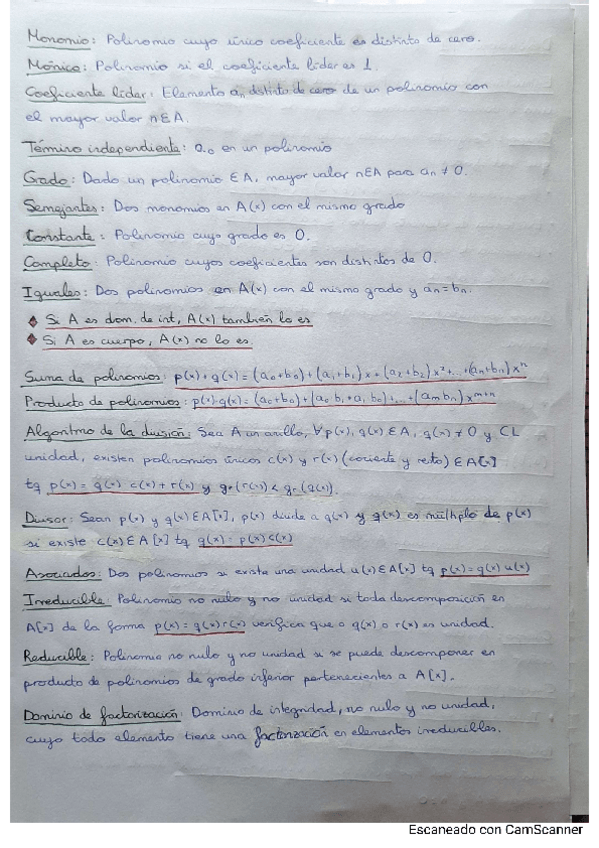 Monomio: Polinomio cuyo único coeficiente es distinto de cero.
Mónico: Polinomio si el coeficiente lider es 1.
Coeficiente lider: Elemento aₙ distinto de cero de un polinomio con
el mayor valor n∈A.
Término independiente: a₀ en un polinomio
Grado: Dado un polinomio ∈ A, mayor valor n∈A para aₙ ≠ 0.
Semejantes: Dos monomios en A(x) con el mismo grado
Constante: Polinomio cuyo grado es 0.
Completo: Polinomio cuyos coeficientes son distintos de 0.
Iguales: Dos polinomios en A(x) con el mismo grado y aₙ=bₙ.
◆ Si A es dom. de int, A(x) también lo es
◆ Si A es cuerpo, A(x) no lo es.
Suma de polinomios: p(x)+q(x)=(a₀+b₀)+(a₁+b₁)x+(a₂+b₂)x²+...+(aₙ+bₙ)xⁿ
Producto de polinomios: p(x)·q(x)=(a₀+b₀)+(a₀b₁+a₁b₀)+...+(aₘbₙ)xᵐ⁺ⁿ
Algoritmo de la división: Sea A un anillo, ∀p(x), q(x)∈A, q(x)≠0 y CL
unidad, existen polinomios únicos c(x) y r(x) (cociente y resto) ∈A[x]
tq p(x)=q(x)c(x)+r(x) y gr(r(x))<gr(q(x)).
Divisor: Sean p(x) y q(x)∈A[x], p(x) divide a q(x) y q(x) es múltiplo de p(x)
si existe c(x)∈A[x] tq q(x)=p(x)c(x)
Asociados: Dos polinomios si existe una unidad u(x)∈A[x] tq p(x)=q(x)u(x)
Irreducible: Polinomio no nulo y no unidad si toda descomposición en
A[x] de la forma p(x)=q(x)r(x) verifica que o q(x) o r(x) es unidad.
Reducible: Polinomio no nulo y no unidad si se puede descomponer en
producto de polinomios de grado inferior pertenecientes a A[x].
Dominio de factorización: Dominio de integridad, no nulo y no unidad,
cuyo todo elemento tiene una factorización en elementos irreducibles.
Escaneado con CamScanner